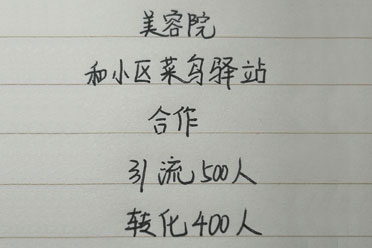 美容院
和小区菜鸟驿站
合作
引流500人
转化400人